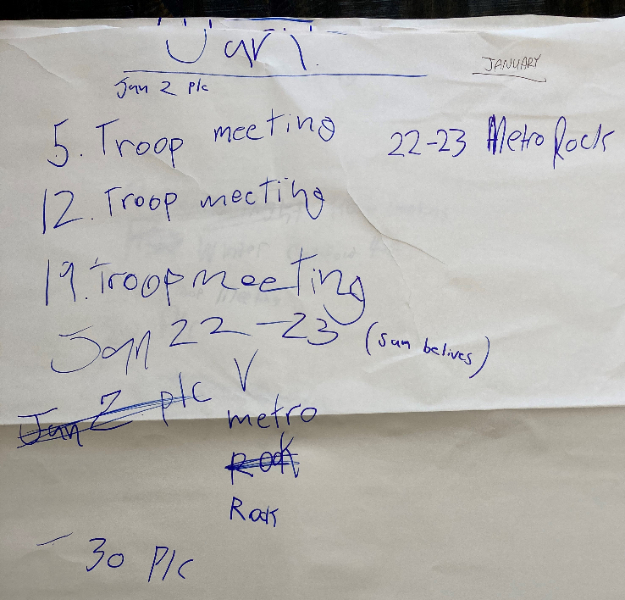 Jan
JANUARY
Jan 2 plc
5. Troop meeting
22-23 Metro Rock
12. Troop meeting
19. Troop meeting
Jan 22-23 (sam belives)
Jan 2 plc
metro
Rock
Rok
- 30 Plc